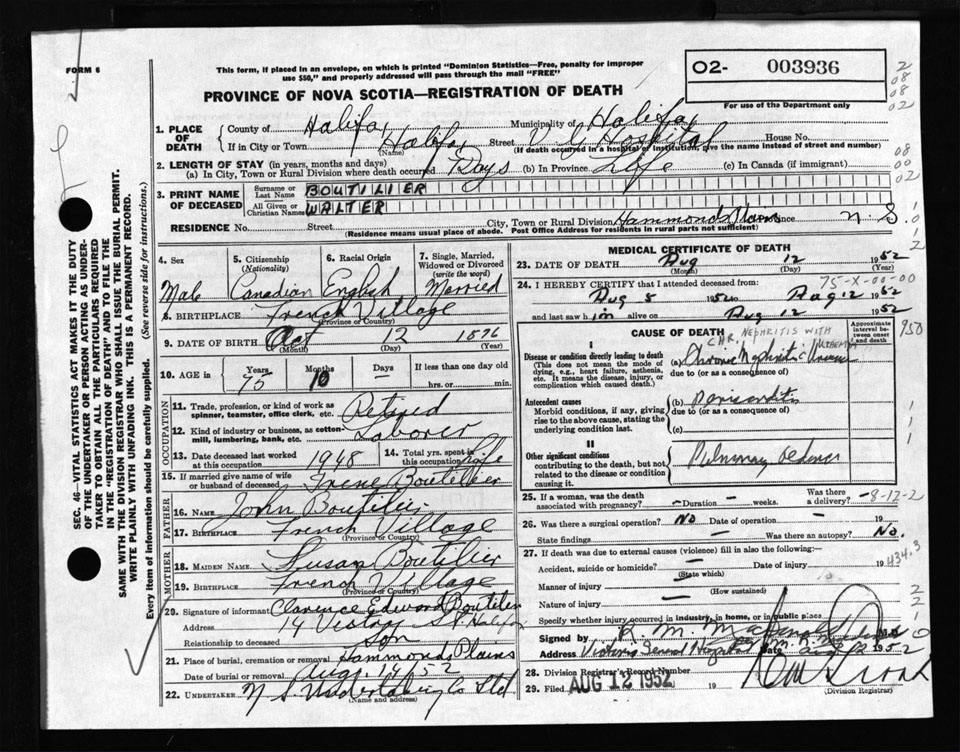 FORM 6
This form, if placed in an envelope, on which is printed "Dominion Statistics—Free, penalty for improper
use $50," and properly addressed will pass through the mail "FREE"
PROVINCE OF NOVA SCOTIA—REGISTRATION OF DEATH
O2- 003936
For use of the Department only
2
08
08
02
08
00
02
1. PLACE OF DEATH
County of Halifax Municipality of Halifax
If in City or Town Halifax (Name) Street V G Hospital House No.
(If death occurred in a hospital or institution, give the name instead of street and number)
2. LENGTH OF STAY (in years, months and days)
(a) In City, Town or Rural Division where death occurred Days (b) In Province Life (c) In Canada (if immigrant)
3. PRINT NAME OF DECEASED
Surname or Last Name BOUTILIER
All Given or Christian Names WALTER
RESIDENCE No. Street City, Town or Rural Division Hammonds Plains Province N S.
(Residence means usual place of abode. Post Office Address for residents in rural parts not sufficient)
4. Sex Male
5. Citizenship (Nationality) Canadian
6. Racial Origin English
7. Single, Married, Widowed or Divorced (write the word) Married
8. BIRTHPLACE French Village
(Province or Country)
9. DATE OF BIRTH Oct 12 1876
(Month) (Day) (Year)
10. AGE in Years 75 Months 10 Days If less than one day old
hrs. or min.
OCCUPATION
11. Trade, profession, or kind of work as spinner, teamster, office clerk, etc. Retired
12. Kind of industry or business, as cotton-mill, lumbering, bank, etc. Laborer
13. Date deceased last worked at this occupation 1948
14. Total yrs. spent in this occupation Life
15. If married give name of wife or husband of deceased Irene Boutilier
FATHER
16. NAME John Boutilier
17. BIRTHPLACE French Village
(Province or Country)
MOTHER
18. MAIDEN NAME Susan Boutilier
19. BIRTHPLACE French Village
(Province or Country)
20. Signature of informant Clarence Edward Boutilier
Address 14 Victory St. Halifax
Relationship to deceased son
21. Place of burial, cremation or removal Hammond Plains
Date of burial or removal Aug. 14/52
22. UNDERTAKER N S Undertaking Co Ltd
(Name and address)
MEDICAL CERTIFICATE OF DEATH
23. DATE OF DEATH Aug 12 1952
(Month) (Day) (Year)
75-X-00-00
24. I HEREBY CERTIFY that I attended deceased from:
Aug 8 1952 to Aug 12 1952
and last saw him alive on Aug 12 1952
CAUSE OF DEATH
Approximate interval between onset and death
950
CHR. NEPHRITIS WITH UREMIA
I
Disease or condition directly leading to death
(This does not mean the mode of dying, e.g., heart failure, asthenia, etc. It means the disease, injury, or complication which caused death.)
(a) Chronic Nephritis Uremia
due to (or as a consequence of)
Antecedent causes
Morbid conditions, if any, giving rise to the above cause, stating the underlying condition last.
(b) Pericarditis
due to (or as a consequence of)
(c)
II
Other significant conditions
contributing to the death, but not related to the disease or condition causing it.
Pulmonary Oedema
25. If a woman, was the death associated with pregnancy? - Duration - weeks. Was there a delivery? -8-12-2
26. Was there a surgical operation? No Date of operation - 19
State findings - Was there an autopsy? No.
434.3
27. If death was due to external causes (violence) fill in also the following:-
Accident, suicide or homicide? - Date of injury 19
(State which)
Manner of injury -
(How sustained)
Nature of injury -
Specify whether injury occurred in industry, in home, or in public place
Signed by
Address Victoria General Hospital Date Aug 12 1952
28. Division Registrar's Record Number
29. Filed AUG 12 1952
(Division Registrar)
SEC. 46—VITAL STATISTICS ACT MAKES IT THE DUTY
OF THE UNDERTAKER OR PERSON ACTING AS UNDER-
TAKER TO OBTAIN ALL THE PARTICULARS REQUIRED
IN THE "REGISTRATION OF DEATH" AND TO FILE THE
SAME WITH THE DIVISION REGISTRAR WHO SHALL ISSUE THE BURIAL PERMIT.
WRITE PLAINLY WITH UNFADING INK. THIS IS A PERMANENT RECORD.
Every item of information should be carefully supplied. (See reverse side for instructions.)